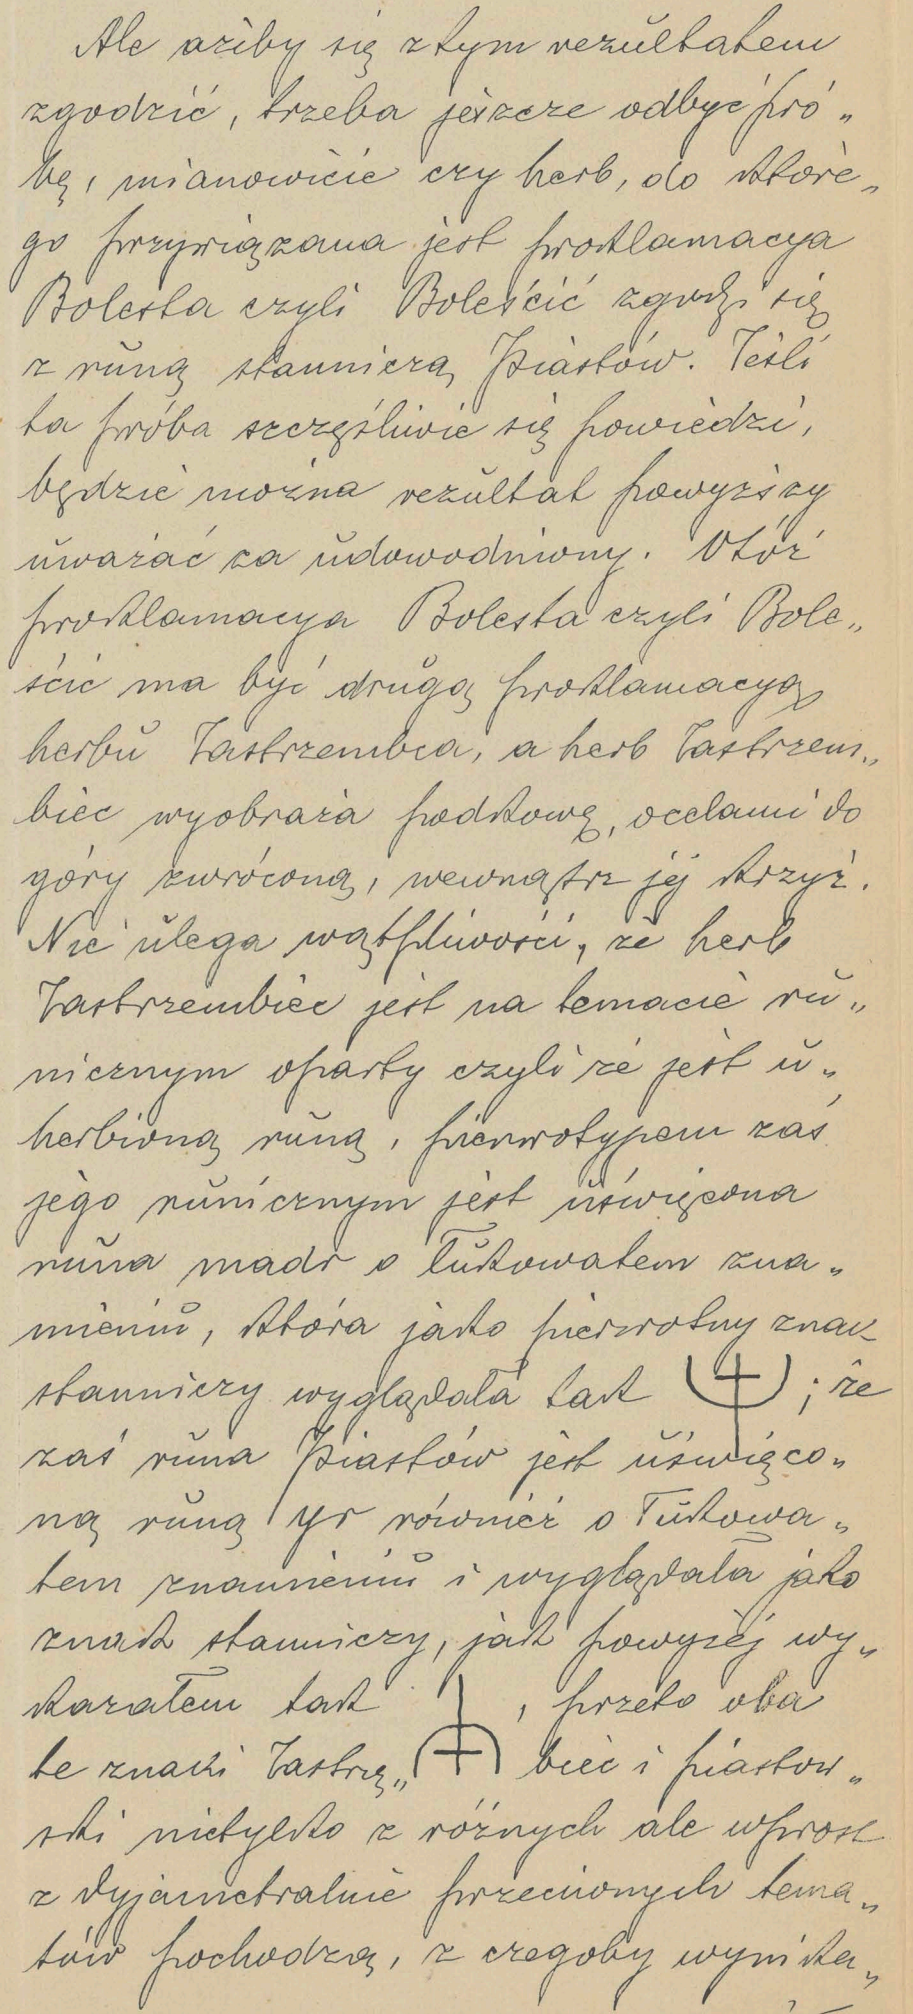 Ale ażeby się z tym rezultatem
zgodzić, trzeba jeszcze odbyć pró„
bę, mianowicie czy herb, do które„
go przywiązana jest proklamacya
Bolesta czyli Boleścić zgodzi się
z runą stanniczą Piastów. Jeśli
ta próba szczęśliwie się powiedzie,
będzie można rezultat powyższy
uważać za udowodniony. Otóż
proklamacya Bolesta czyli Bole„
ścic ma być drugą proklamacyą
herbu Jastrzembca, a herb Jastrzem„
biec wyobraża podkowę, ocelami do
góry zwróconą, wewnątrz jej krzyż.
Nie ulega wątpliwości, że herb
Jastrzembiec jest na temacie ru„
nicznym oparty czyli że jest u„
herbioną runą, pierwotypem zaś
jego runicznym jest uświęcona
runa madr o łukowatem zna„
mieniu, która jako pierwotny znak
stanniczy wyglądała tak ; że
zaś runa Piastów jest uświęco„
ną runą yr również o łukowa„
tem znamieniu i wyglądała jako
znak stanniczy, jak powyżej wy„
kazałem tak , przeto oba
te znaki Jastrzę„ biec i piastow„
ski nietylko z różnych ale wprost
z dyjametralnie przeciwnych tema„
tów pochodzą, z czegoby wynika„